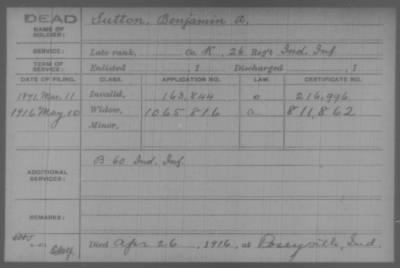 DEAD
NAME OF SOLDIER:
Sutton, Benjamin A.
SERVICE:
Late rank, Co. K, 26 Reg't Ind. Inf
TERM OF SERVICE:
Enlisted , 1 Discharged , 1
DATE OF FILING. CLASS. APPLICATION NO. LAW. CERTIFICATE NO.
1871 Mar. 11 Invalid, 163,844 216,996
1916 May 10 Widow, 1065,816 811,862
Minor,
ADDITIONAL SERVICES:
B 60 Ind. Inf.
REMARKS:
Died Apr 26, 1916, at Poseyville, Ind.